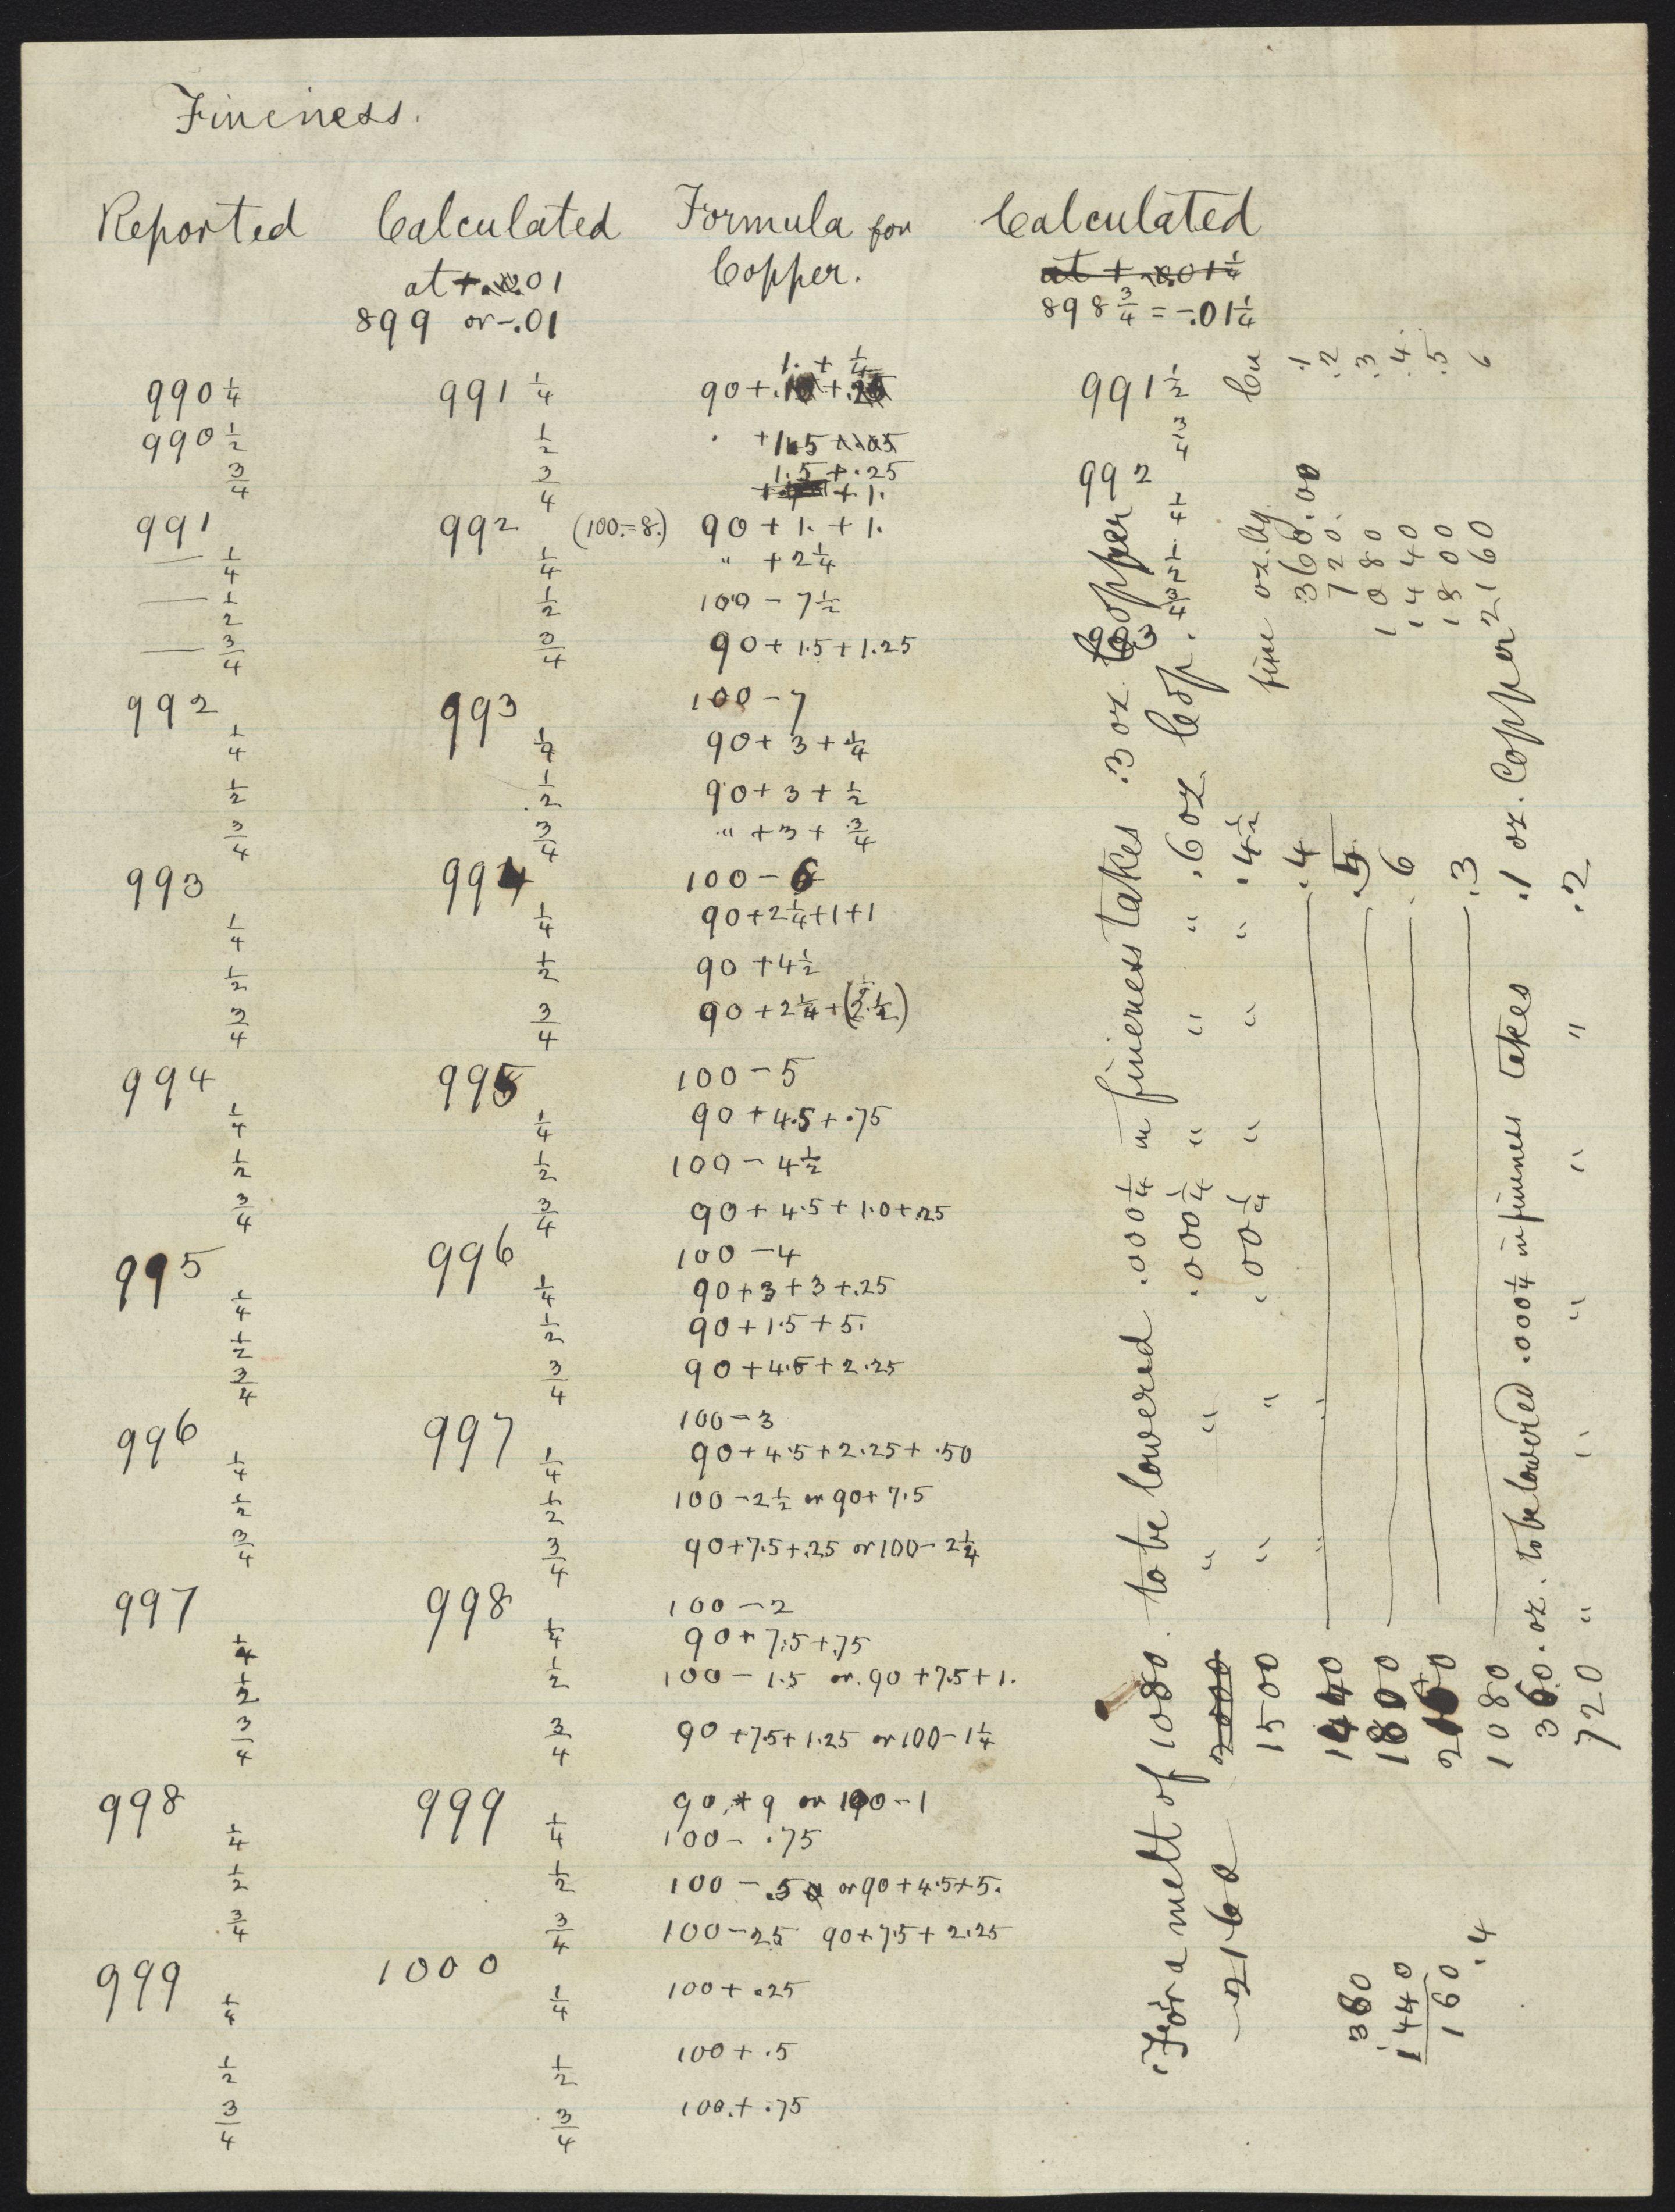 Fineness.
Reported Calculated Formula for Calculated
at + .01 Copper. at + .01 1/4
899 or -.01 898 3/4 = -.01 1/4
1. + 1/4
990 1/4 991 1/4 90 + 991 1/2
990 1/2 1/2 + 1.5 + .05 3/4
3/4 3/4 1.5 + .25 992
+ 1.
991 992 (100.=8.) 90 + 1. + 1. 1/4
— 1/4 1/4 " + 2 1/4 1/2
— 1/2 1/2 100 - 7 1/2 3/4
— 3/4 3/4 90 + 1.5 + 1.25 993
992 993 100 - 7
1/4 1/4 90 + 3 + 1/4
1/2 1/2 90 + 3 + 1/2
3/4 3/4 " + 3 + 3/4
993 994 100 - 6
1/4 1/4 90 + 2 1/4 + 1 + 1
1/2 1/2 90 + 4 1/2
3/4 3/4 90 + 2 1/4 + (2 1/2)
994 995 100 - 5
1/4 1/4 90 + 4.5 + .75
1/2 1/2 100 - 4 1/2
3/4 3/4 90 + 4.5 + 1.0 + .25
995 996 100 - 4
1/4 1/4 90 + 3 + 3 + .25
1/2 1/2 90 + 1.5 + 5.
3/4 3/4 90 + 4.5 + 2.25
996 997 100 - 3
1/4 1/4 90 + 4.5 + 2.25 + .50
1/2 1/2 100 - 2 1/2 or 90 + 7.5
3/4 3/4 90 + 7.5 + .25 or 100 - 2 1/4
997 998 100 - 2
1/4 1/4 90 + 7.5 + .75
1/2 1/2 100 - 1.5 or. 90 + 7.5 + 1.
3/4 3/4 90 + 7.5 + 1.25 or 100 - 1 1/4
998 999 90 + 9 or 100 - 1
1/4 1/4 100 - .75
1/2 1/2 100 - .50 or 90 + 4.5 + 5.
3/4 3/4 100 - 25 90 + 7.5 + 2.25
999 1000
1/4 1/4 100 + .25
1/2 1/2 100 + .5
3/4 3/4 100. + .75
For a melt of 1080 to be lowered .000 1/4 in fineness takes .3 oz. Copper
2160 2000 " " .000 1/4 " " " .6 oz Cop.
1500 " " .00 1/4 " " " .4 1/2
1440 " " .4
1800 .5
2160 .6
1080 .3
360. oz. to be lowered .000 1/4 in fineness takes .1 oz. Copper
720 " " " " " .2
fine oz. Ag. Cu
360.00 .1
720. .2
1080 .3
1440 .4
1800 .5
2160 6
360
1440
160
.4